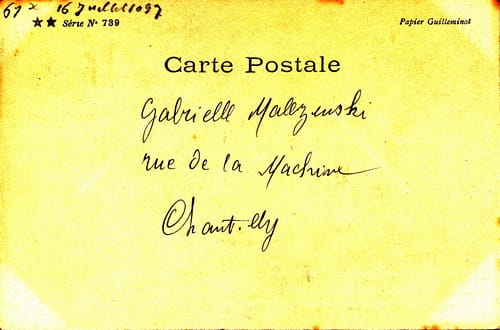 16 Juillet
★★ Série Nº 739
Papier Guilleminot
Carte Postale
Gabrielle Malezenski
rue de la Machine
Chantilly